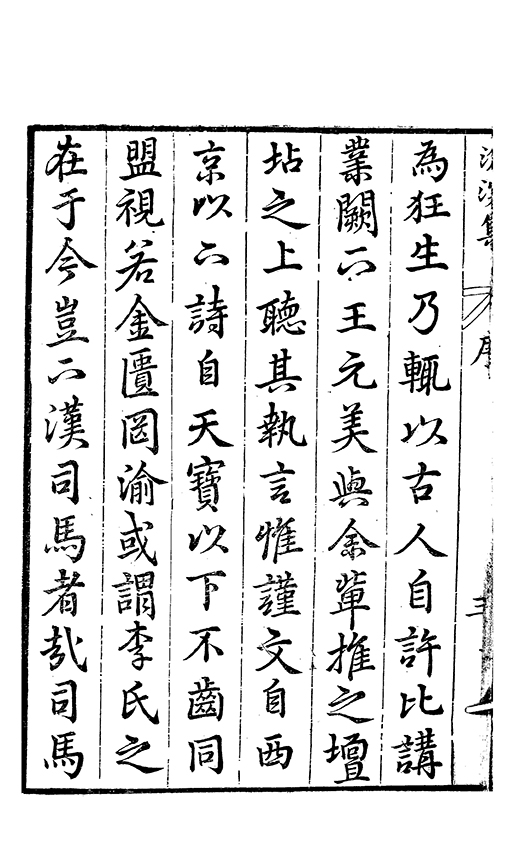 滄溟集 序 三
為狂生乃輒以古人自許比講
業闕下王元美與余輩推之壇
坫之上聽其執言惟謹文自西
京以下詩自天寶以下不齒同
盟視若金匱罔渝或謂李氏之
在于今豈下漢司馬者哉司馬